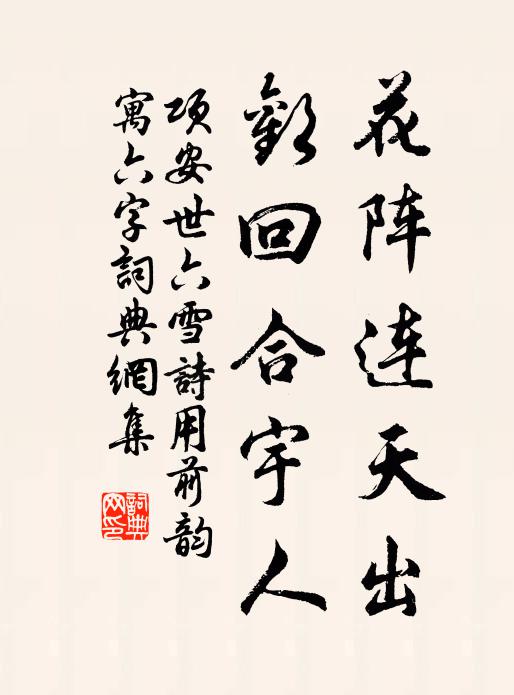 花阵连天出
歡回合宇人
项安世六雪詩用前韵
寓六字詞典網集
詞典网印